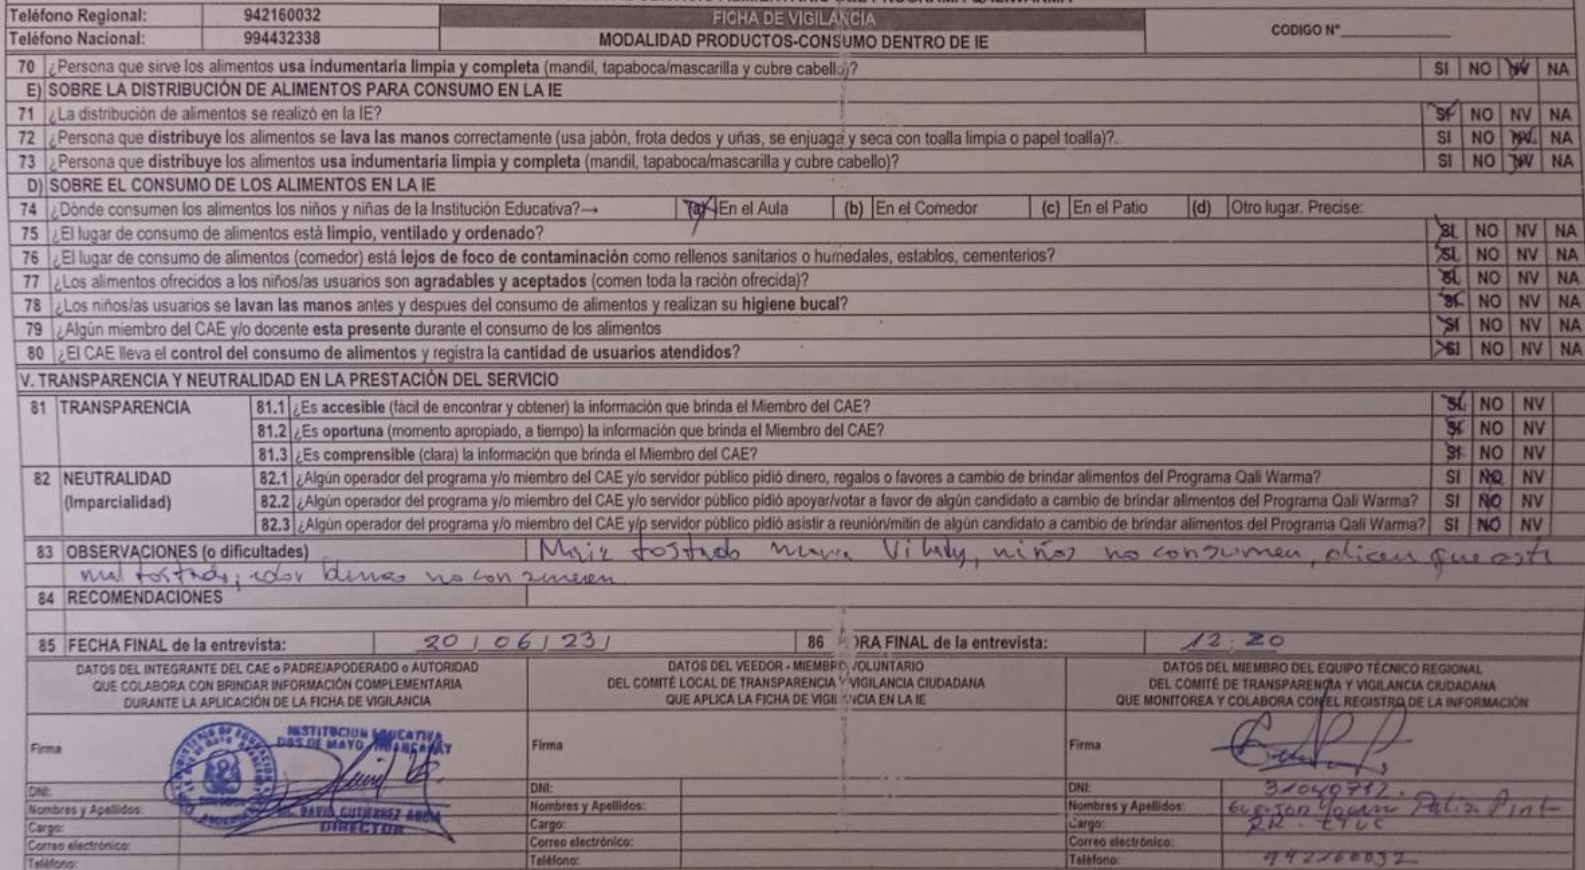 Teléfono Regional: 942160032 FICHA DE VIGILANCIA CODIGO N°
Teléfono Nacional: 994432338 MODALIDAD PRODUCTOS-CONSUMO DENTRO DE IE
70 ¿Persona que sirve los alimentos usa indumentaria limpia y completa (mandil, tapaboca/mascarilla y cubre cabello)? SI NO NV NA
E) SOBRE LA DISTRIBUCIÓN DE ALIMENTOS PARA CONSUMO EN LA IE
71 ¿La distribución de alimentos se realizó en la IE? SI NO NV NA
72 ¿Persona que distribuye los alimentos se lava las manos correctamente (usa jabón, frota dedos y uñas, se enjuaga y seca con toalla limpia o papel toalla)?. SI NO NV NA
73 ¿Persona que distribuye los alimentos usa indumentaria limpia y completa (mandil, tapaboca/mascarilla y cubre cabello)? SI NO NV NA
D) SOBRE EL CONSUMO DE LOS ALIMENTOS EN LA IE
74 ¿Dónde consumen los alimentos los niños y niñas de la Institución Educativa?→ (a) En el Aula (b) En el Comedor (c) En el Patio (d) Otro lugar. Precise:
75 ¿El lugar de consumo de alimentos está limpio, ventilado y ordenado? SI NO NV NA
76 ¿El lugar de consumo de alimentos (comedor) está lejos de foco de contaminación como rellenos sanitarios o humedales, establos, cementerios? SI NO NV NA
77 ¿Los alimentos ofrecidos a los niños/as usuarios son agradables y aceptados (comen toda la ración ofrecida)? SI NO NV NA
78 ¿Los niños/as usuarios se lavan las manos antes y despues del consumo de alimentos y realizan su higiene bucal? SI NO NV NA
79 ¿Algún miembro del CAE y/o docente esta presente durante el consumo de los alimentos SI NO NV NA
80 ¿El CAE lleva el control del consumo de alimentos y registra la cantidad de usuarios atendidos? SI NO NV NA
V. TRANSPARENCIA Y NEUTRALIDAD EN LA PRESTACIÓN DEL SERVICIO
81 TRANSPARENCIA 81.1 ¿Es accesible (fácil de encontrar y obtener) la información que brinda el Miembro del CAE? SI NO NV
81.2 ¿Es oportuna (momento apropiado, a tiempo) la información que brinda el Miembro del CAE? SI NO NV
81.3 ¿Es comprensible (clara) la información que brinda el Miembro del CAE? SI NO NV
82 NEUTRALIDAD 82.1 ¿Algún operador del programa y/o miembro del CAE y/o servidor público pidió dinero, regalos o favores a cambio de brindar alimentos del Programa Qali Warma? SI NO NV
(Imparcialidad) 82.2 ¿Algún operador del programa y/o miembro del CAE y/o servidor público pidió apoyar/votar a favor de algún candidato a cambio de brindar alimentos del Programa Qali Warma? SI NO NV
82.3 ¿Algún operador del programa y/o miembro del CAE y/o servidor público pidió asistir a reunión/mitin de algún candidato a cambio de brindar alimentos del Programa Qali Warma? SI NO NV
83 OBSERVACIONES (o dificultades) Maiz tostado marca niños no consumen, dicen que está
mal tostado, no consumen
84 RECOMENDACIONES
85 FECHA FINAL de la entrevista: 20/06/23/ 86 ORA FINAL de la entrevista: 12:20
DATOS DEL INTEGRANTE DEL CAE o PADRE/APODERADO o AUTORIDAD DATOS DEL VEEDOR - MIEMBRO VOLUNTARIO DATOS DEL MIEMBRO DEL EQUIPO TÉCNICO REGIONAL
QUE COLABORA CON BRINDAR INFORMACIÓN COMPLEMENTARIA DEL COMITÉ LOCAL DE TRANSPARENCIA Y VIGILANCIA CIUDADANA DEL COMITÉ DE TRANSPARENCIA Y VIGILANCIA CIUDADANA
DURANTE LA APLICACIÓN DE LA FICHA DE VIGILANCIA QUE APLICA LA FICHA DE VIGILANCIA EN LA IE QUE MONITOREA Y COLABORA CON EL REGISTRO DE LA INFORMACIÓN
INSTITUCION EDUCATIVA
DOS DE MAYO HUANCARAY
Firma Firma Firma
DNI: DNI: DNI: 31040712
Nombres y Apellidos: DAVID GUTIERREZ Nombres y Apellidos: Nombres y Apellidos:
Cargo: DIRECTOR Cargo: Cargo:
Correo electrónico: Correo electrónico: Correo electrónico:
Teléfono: Teléfono: Teléfono: 942160032